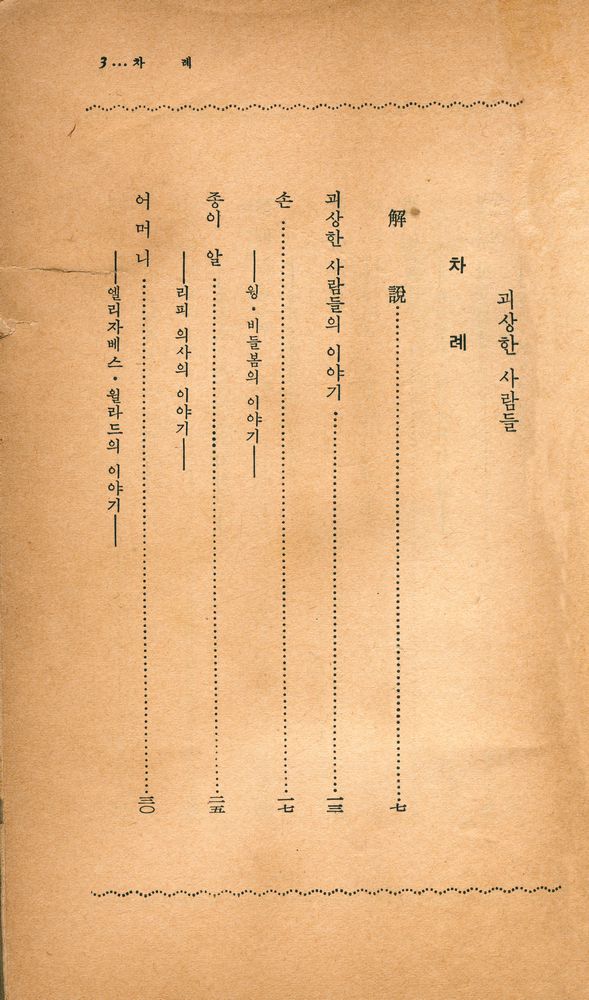 3…차 례
괴상한 사람들
차 례
解 說……七
괴상한 사람들의 이야기……一三
손……一七
──윙·비들봄의 이야기──
종이 알……二五
──리피 의사의 이야기──
어머니……三〇
──엘리자베스·윌라드의 이야기──